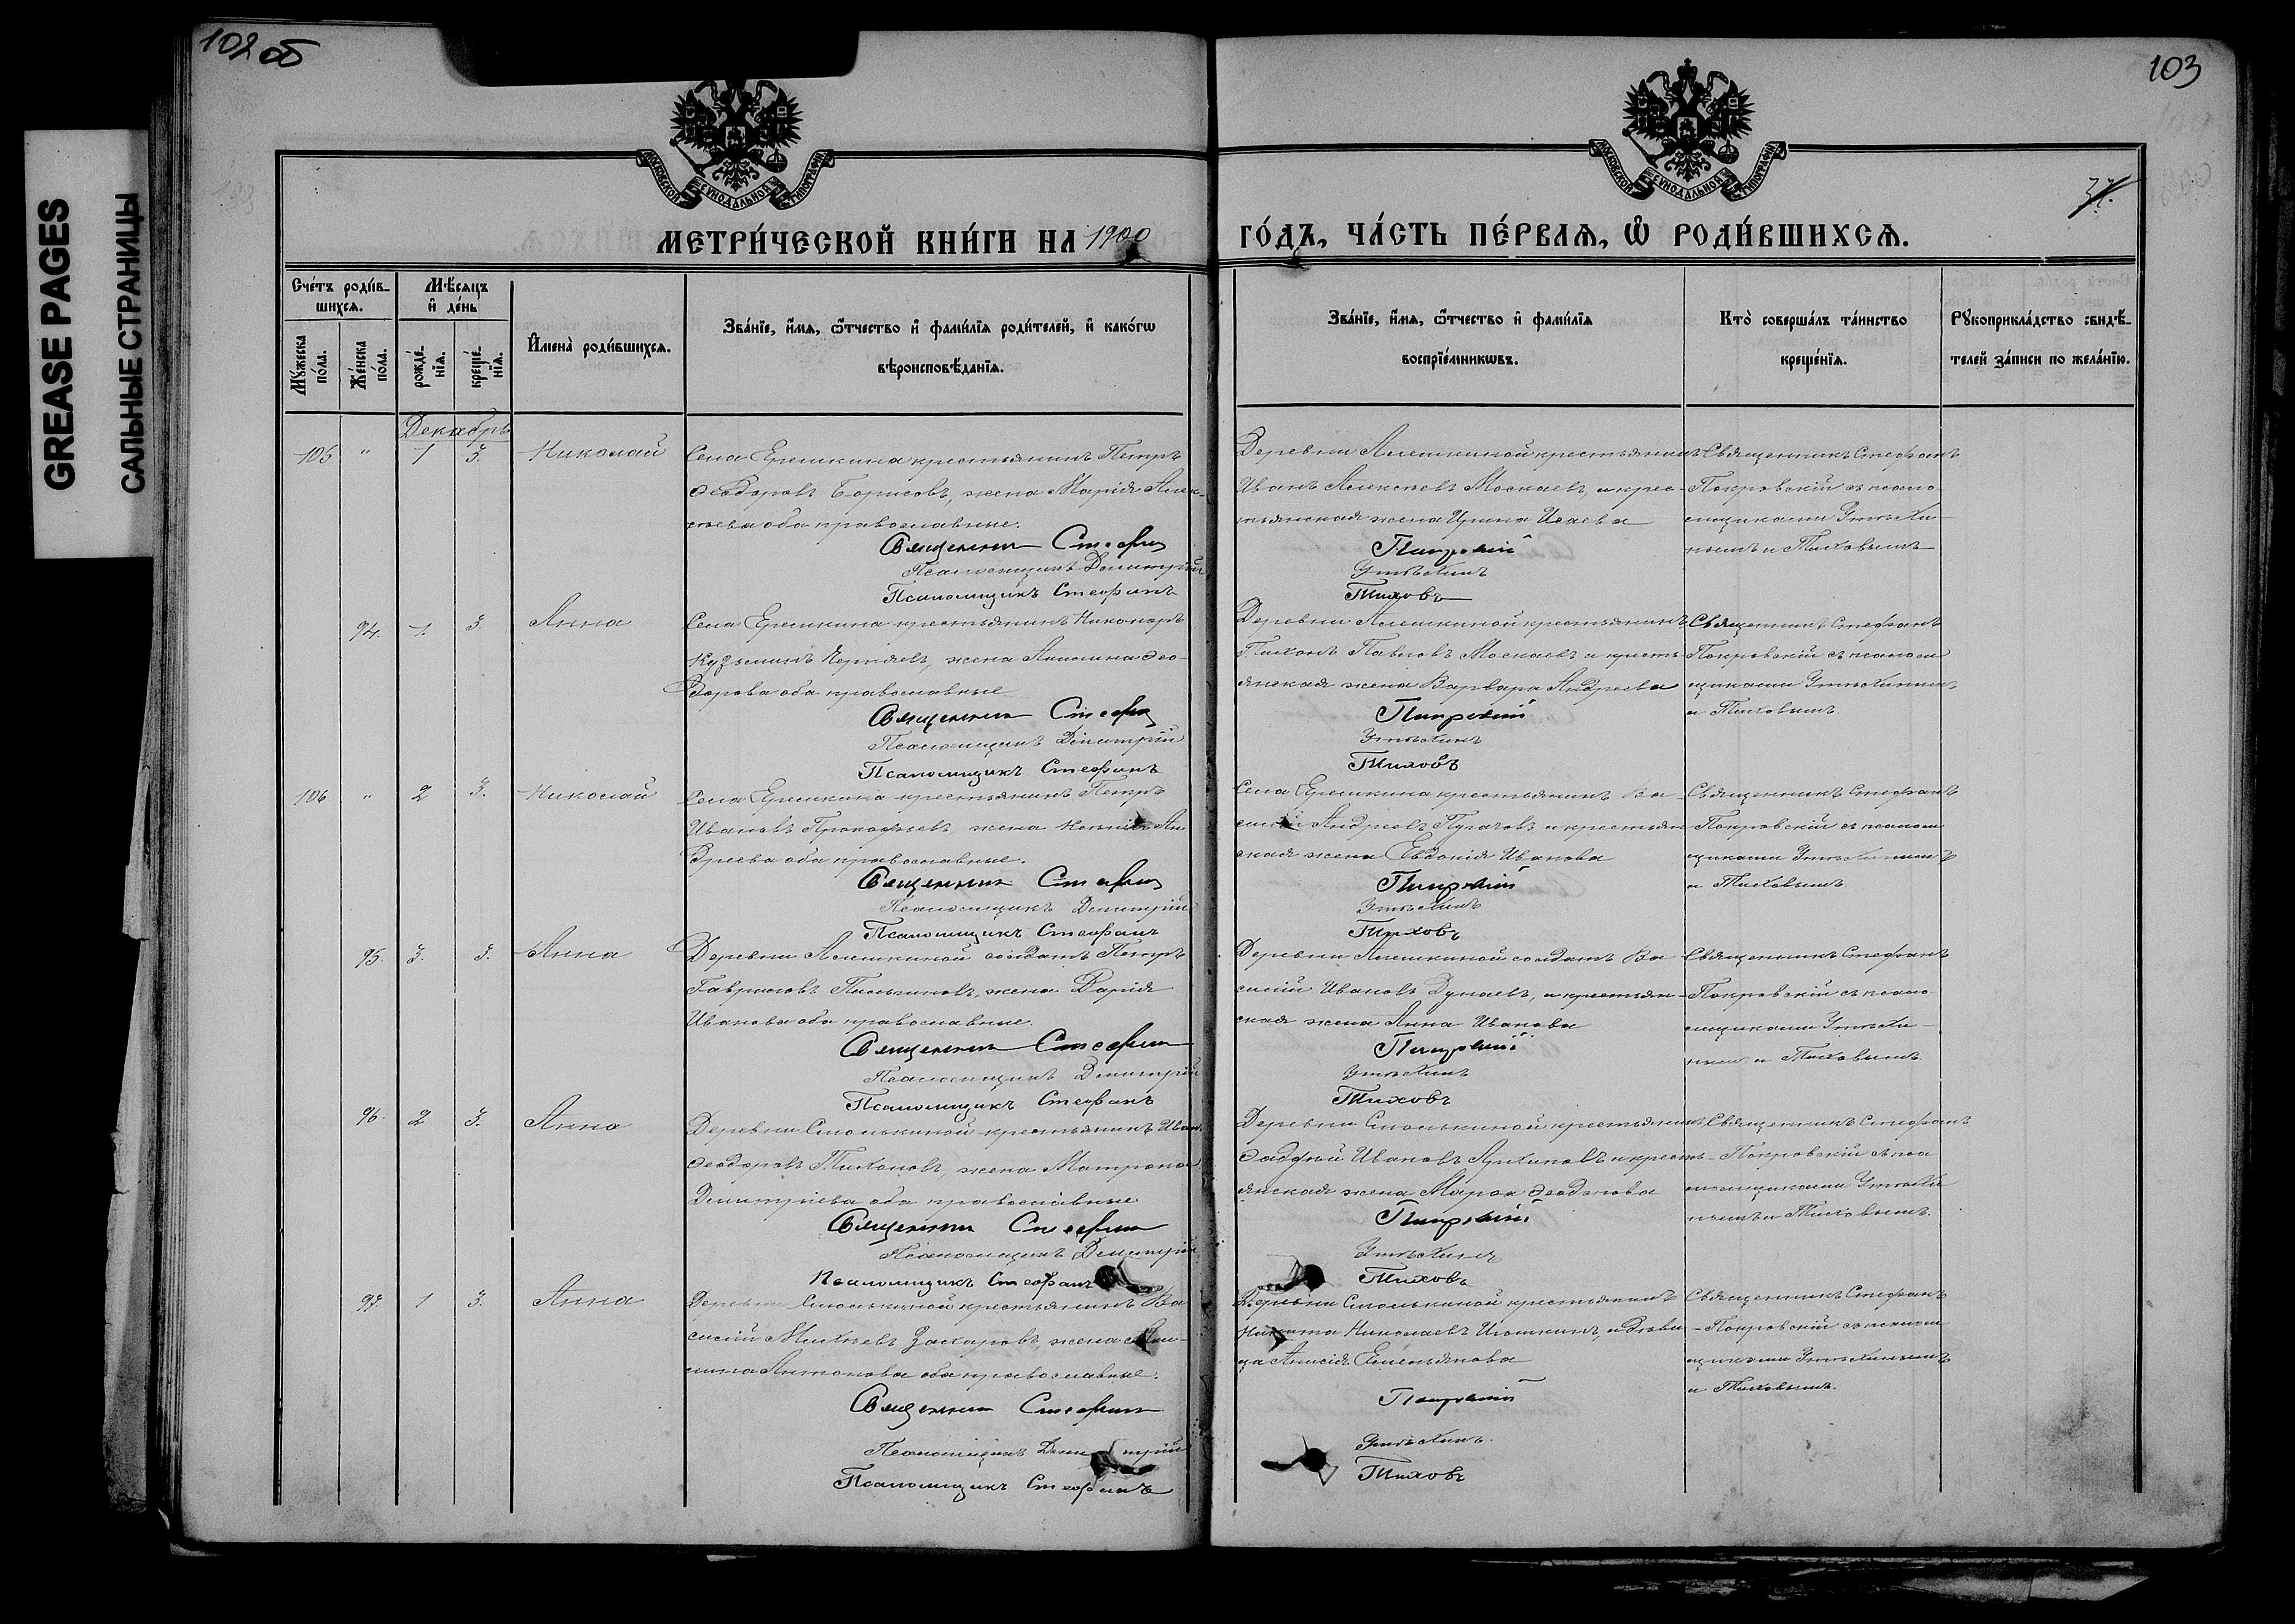 102 об
103
GREASE PAGES
САЛЬНЫЕ СТРАНИЦЫ
МОСКОВСКОЙ СѴНОДАЛЬНОЙ ТИПОГРАФІИ
МОСКОВСКОЙ СѴНОДАЛЬНОЙ ТИПОГРАФІИ
МЕТРИ́ЧЕСКОЙ КНИ́ГИ НА 1900
ГО́ДЪ, ЧА́СТЬ ПЕ́РВАѦ, Ѽ РОДИ́ВШИХСѦ.
Сче́тъ роди́в-
шихсѧ.
Мѣ́сѧцъ
и҆ де́нь
Мꙋ́жеска
по́ла.
Же́нска
по́ла.
рожде́-
нїѧ.
креще́-
нїѧ.
И҆мена̀ роди́вшихсѧ.
Зва́нїе, и҆́мѧ, ѻ҆́тчество и҆ фами́лїѧ роди́телей, и҆ како́гѡ
вѣроисповѣ́данїѧ.
Зва́нїе, и҆́мѧ, ѻ҆́тчество и҆ фами́лїѧ
воспрїе́мникѡвъ.
Кто̀ соверша́лъ та́инство
креще́нїѧ.
Рꙋкоприкла́дство свидѣ́-
телей за́писи по жела́нїю.
Декабрь
105 " 1 3. Николай
Села Ерешкина крестьянинъ Петръ
Ѳеодоровъ Борисовъ, жена Марія Алек-
сѣева оба православные.
Священникъ Стефанъ
Псаломщикъ Димитрій
Псаломщикъ Стефанъ
Деревни Алешкиной крестьянинъ
Иванъ Алексѣевъ Москаевъ, и крес-
тьянская жена Ирина Исаева
Покровскій
Утѣхинъ
Тиховъ
Священникъ Стефанъ
Покровскій съ псало-
мщиками Утѣхи-
нымъ и Тиховымъ
94. 1. 3. Анна
Села Ерешкина крестьянинъ Никоноръ
Кузьминъ Черняевъ, жена Акилина Ѳео-
дорова оба православные
Священникъ Стефанъ
Псаломщикъ Димитрій
Псаломщикъ Стефанъ
Деревни Алешкиной крестьянинъ
Тихонъ Павловъ Москаевъ и кресть-
янская жена Варвара Андреева
Покровскій
Утѣхинъ
Тиховъ
Священникъ Стефанъ
Покровскій съ псалом
щиками Утѣхинымъ
и Тиховымъ.
106 " 2 3. Николай
Села Ерешкина крестьянинъ Петръ
Ивановъ Прокофьевъ, жена Ксенія Ан
дреева оба православные.
Священникъ Стефанъ
Псаломщикъ Димитрій
Псаломщикъ Стефанъ
Села Ерешкина крестьянинъ Ва-
силій Андреевъ Пугачовъ и крестьян-
ская жена Евдокія Иванова
Покровскій
Утѣхинъ
Тиховъ
Священникъ Стефанъ
Покровскій съ псалом
щиками Утѣхинымъ
и Тиховымъ.
95. 3. 3. Анна
Деревни Алешкиной солдатъ Петръ
Гавриловъ жена Дарія
Иванова оба православные.
Священникъ Стефанъ
Псаломщикъ Димитрій
Псаломщикъ Стефанъ
Деревни Алешкиной солдатъ Ва-
силій Ивановъ Дунаевъ, и крестьян-
ская жена Анна Иванова
Покровскій
Утѣхинъ
Тиховъ
Священникъ Стефанъ
Покровскій съ псало-
мщиками Утѣхи-
нымъ и Тиховымъ.
96. 2 3. Анна
Деревни Смолькиной крестьянинъ Иванъ
Ѳеодоровъ Тихоновъ, жена Матрона
Димитріева оба православные
Священникъ Стефанъ
Псаломщикъ Димитрій
Псаломщикъ Стефанъ
Деревни Смолькиной крестьянинъ
Ѳаддѣй Ивановъ Архиповъ и кресть-
янская жена Марѳа Ѳеодорова
Покровскій
Утѣхинъ
Тиховъ
Священникъ Стефанъ
Покровскій съ пса
ломщиками Утѣхи
нымъ и Тиховымъ.
97. 1 3. Анна
Деревни Смолькиной крестьянинъ Ва
силій Михѣевъ Захаровъ, жена
Антонова оба православные.
Священникъ Стефанъ
Псаломщикъ Димитрій
Псаломщикъ Стефанъ
Деревни Смолькиной крестьянинъ
Никита Николаевъ и дѣви-
ца Анисія Емельянова
Покровскій
Утѣхинъ.
Тиховъ
Священникъ Стефанъ
Покровскій съ псалом-
щиками Утѣхинымъ
и Тиховымъ.